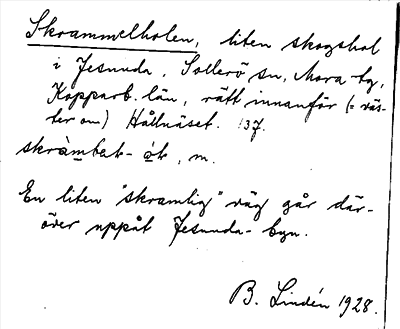 Skrammelholen, liten skogshol
i Jesunda, Sollerö sn, Mora tg,
Kopparb. län, rätt innanför (= väs-
ter om) Hållnäset. 137.
skràm̲bək- ó̲k, m.
En liten "skramlig" väg går där-
över uppåt Jesunda-byn.
B. Lindén 1928.